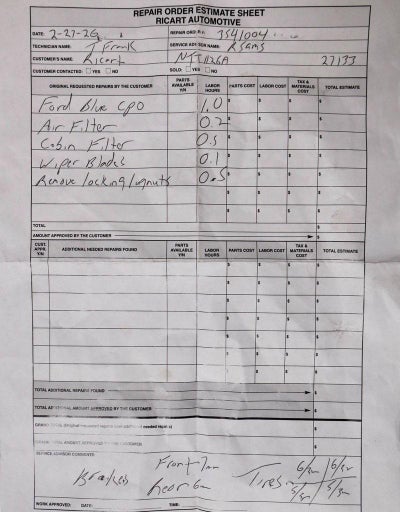 REPAIR ORDER ESTIMATE SHEET
RICART AUTOMOTIVE
DATE: 2-27-26 REPAIR ORD. R #: 3541004
TECHNICIAN NAME: T Frank SERVICE ADVISOR NAME: R Sams
CUSTOMER'S NAME: Ricart 27133
CUSTOMER CONTACTED: YES NO SOLD: YES NO
ORIGINAL REQUESTED REPAIRS BY THE CUSTOMER PARTS AVAILABLE Y/N LABOR HOURS PARTS COST LABOR COST TAX & MATERIALS COST TOTAL ESTIMATE
Ford Blue CPO 1.0 $ $ $ $
Air Filter 0.2 $ $ $ $
Cabin Filter 0.5 $ $ $ $
Wiper Blades 0.1 $ $ $ $
Remove locking lugnuts 0.5 $ $ $ $
$ $ $ $
$ $ $ $
TOTAL $
AMOUNT APPROVED BY THE CUSTOMER $
CUST. APPR. Y/N ADDITIONAL NEEDED REPAIRS FOUND PARTS AVAILABLE Y/N LABOR HOURS PARTS COST LABOR COST TAX & MATERIALS COST TOTAL ESTIMATE
$ $ $ $
$ $ $ $
$ $ $ $
$ $ $ $
$ $ $ $
$ $ $ $
$ $ $ $
TOTAL ADDITIONAL REPAIRS FOUND $
TOTAL ADDITIONAL AMOUNT APPROVED BY THE CUSTOMER $
GRAND TOTAL (original requested repairs plus additional needed repairs) $
GRAND TOTAL AMOUNT APPROVED BY THE CUSTOMER $
SERVICE ADVISOR COMMENTS
Brakes Front 7mm Tires 6/32 6/32
Rear 6mm 5/32 5/32
WORK APPROVED: DATE: TIME: